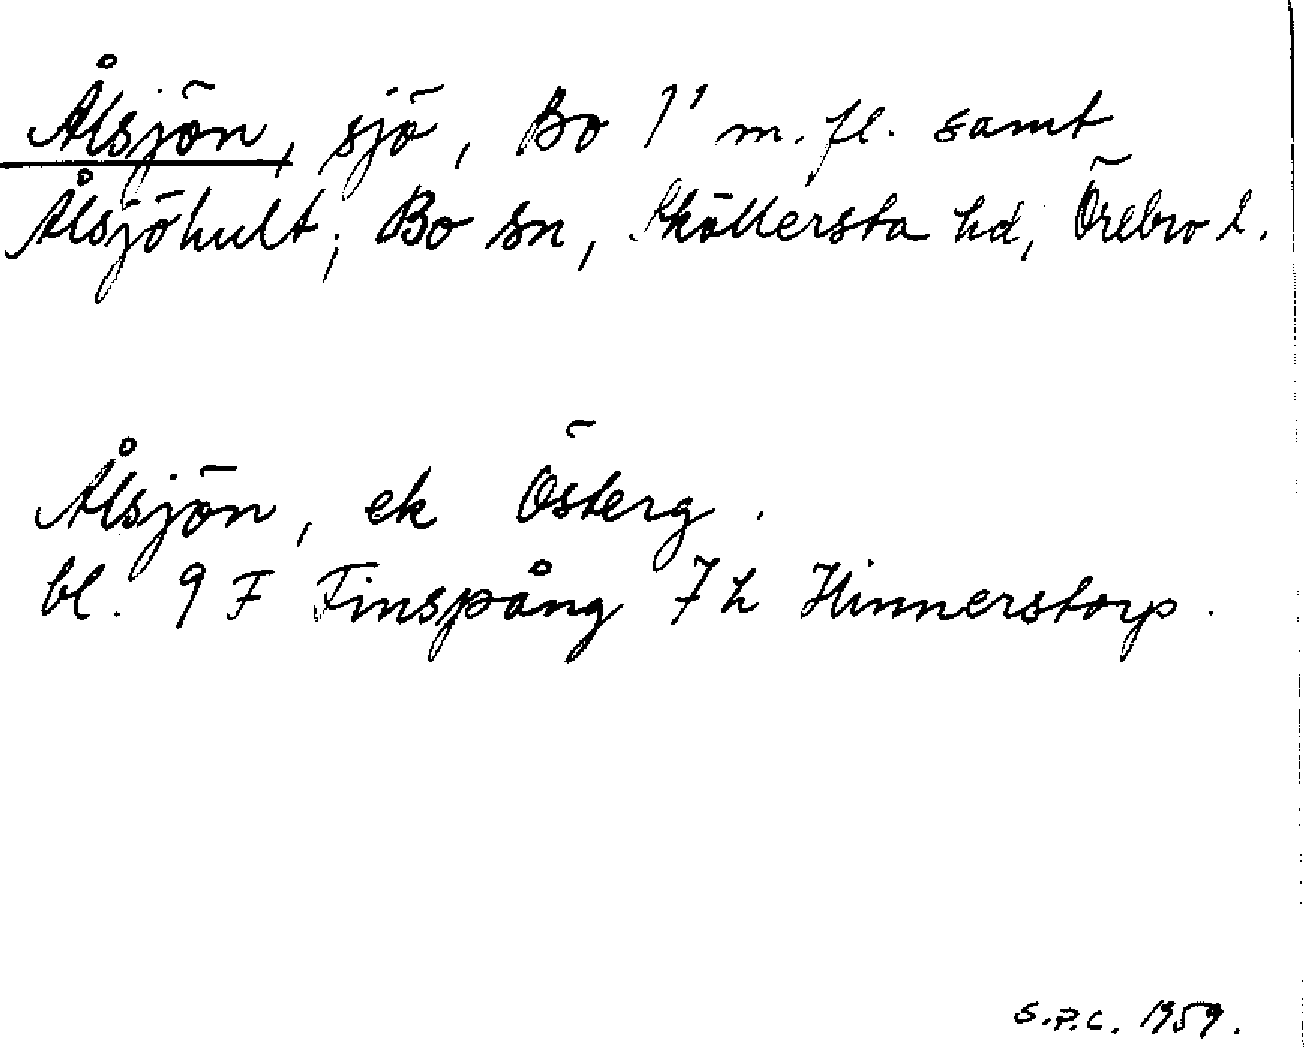 Ålsjön, sjö, Bo 1¹ m.fl. samt
Ålsjöhult; Bo sn, Sköllersta hd, Örebro l.
Ålsjön, ek Österg.
bl. 9 F Finspång 7h Hinnerstorp.
S.P.C. 1959.